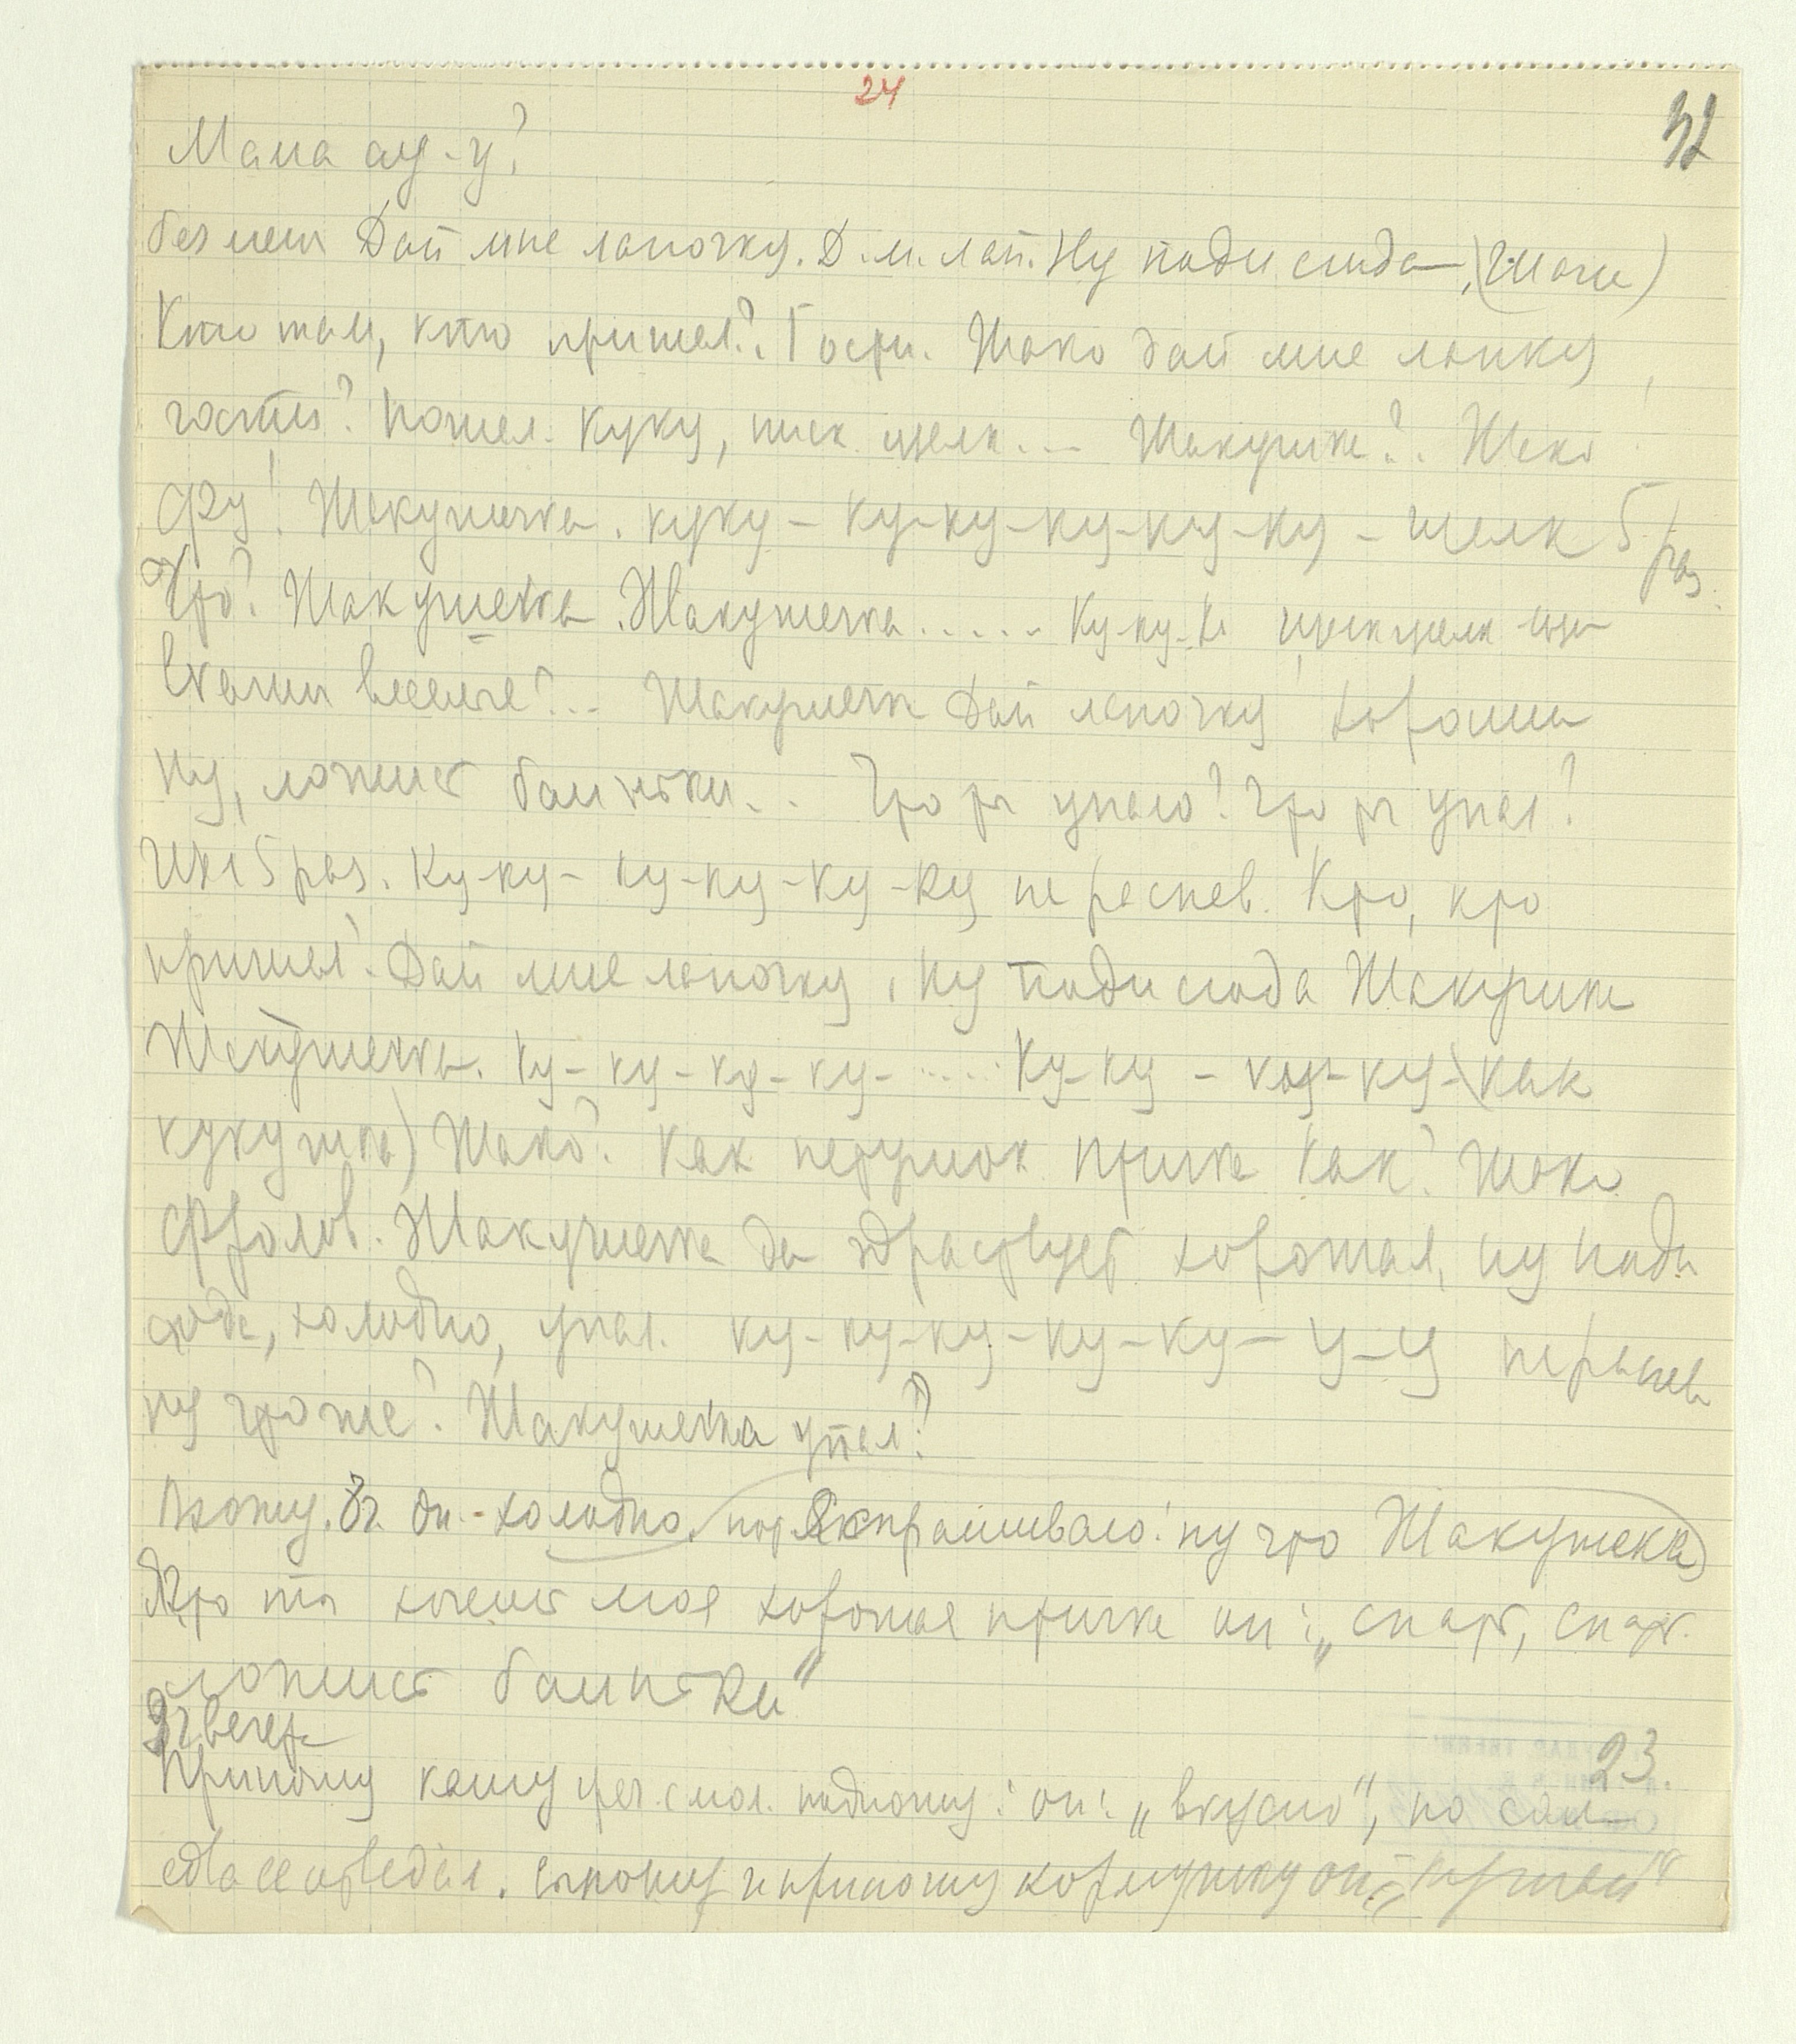 24
32
Мама ау-у?
без меня Дай мне лапочку. Д. м. лап. Ну поди сюда, (Жако)
Кто там, кто пришел? Гости. Жако дай мне лапку
гости? Пошел. Куку, писк щелк... Жакушка? Жако
фу! Жакушечка. куку – ку-ку-ку-ку-ку – щелк 5 раз.
Что? Жакушечка. Жакушечка..... Ку-ку-к щелк
веселые?.. Жакушечк Дай лапочку хороши
ну, ложись баиньки.. Что ты упало? Что ты упал?
5 раз. Ку-ку- ку-ку-ку-ку перепев. Кто, кто
пришел? Дай мне лапочку, ну поди сюда Жакушка
Жакушечка. Ку-ку-ку-ку-.....Ку-ку – ку-ку-(как
кукушка) Жако? Как петушок птичка Как? Жако
Фролов. Жакушечка да здраствует хорошая, ну поди
сюда, холодно, упал. ку-ку-ку-ку-ку-у-у перепев
ну что же? Жакушечка упал?
Вхожу. 8 ч. он - холодно. Я спрашиваю: ну что Жакушека)
Что ты хочешь моя хорошая птичка он: „спать, спать.
ложись баиньки"
9 ч вечера
23.
Приношу кашу греч. с мол. подношу: он: „вкусно", но сам
едва ее отведал. и приношу кормушку он „кушай"